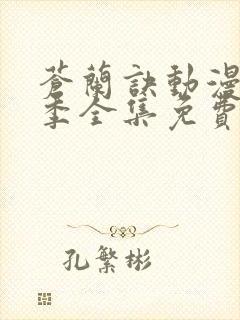 蒼蘭訣動漫
季全集免費
孔繁彬